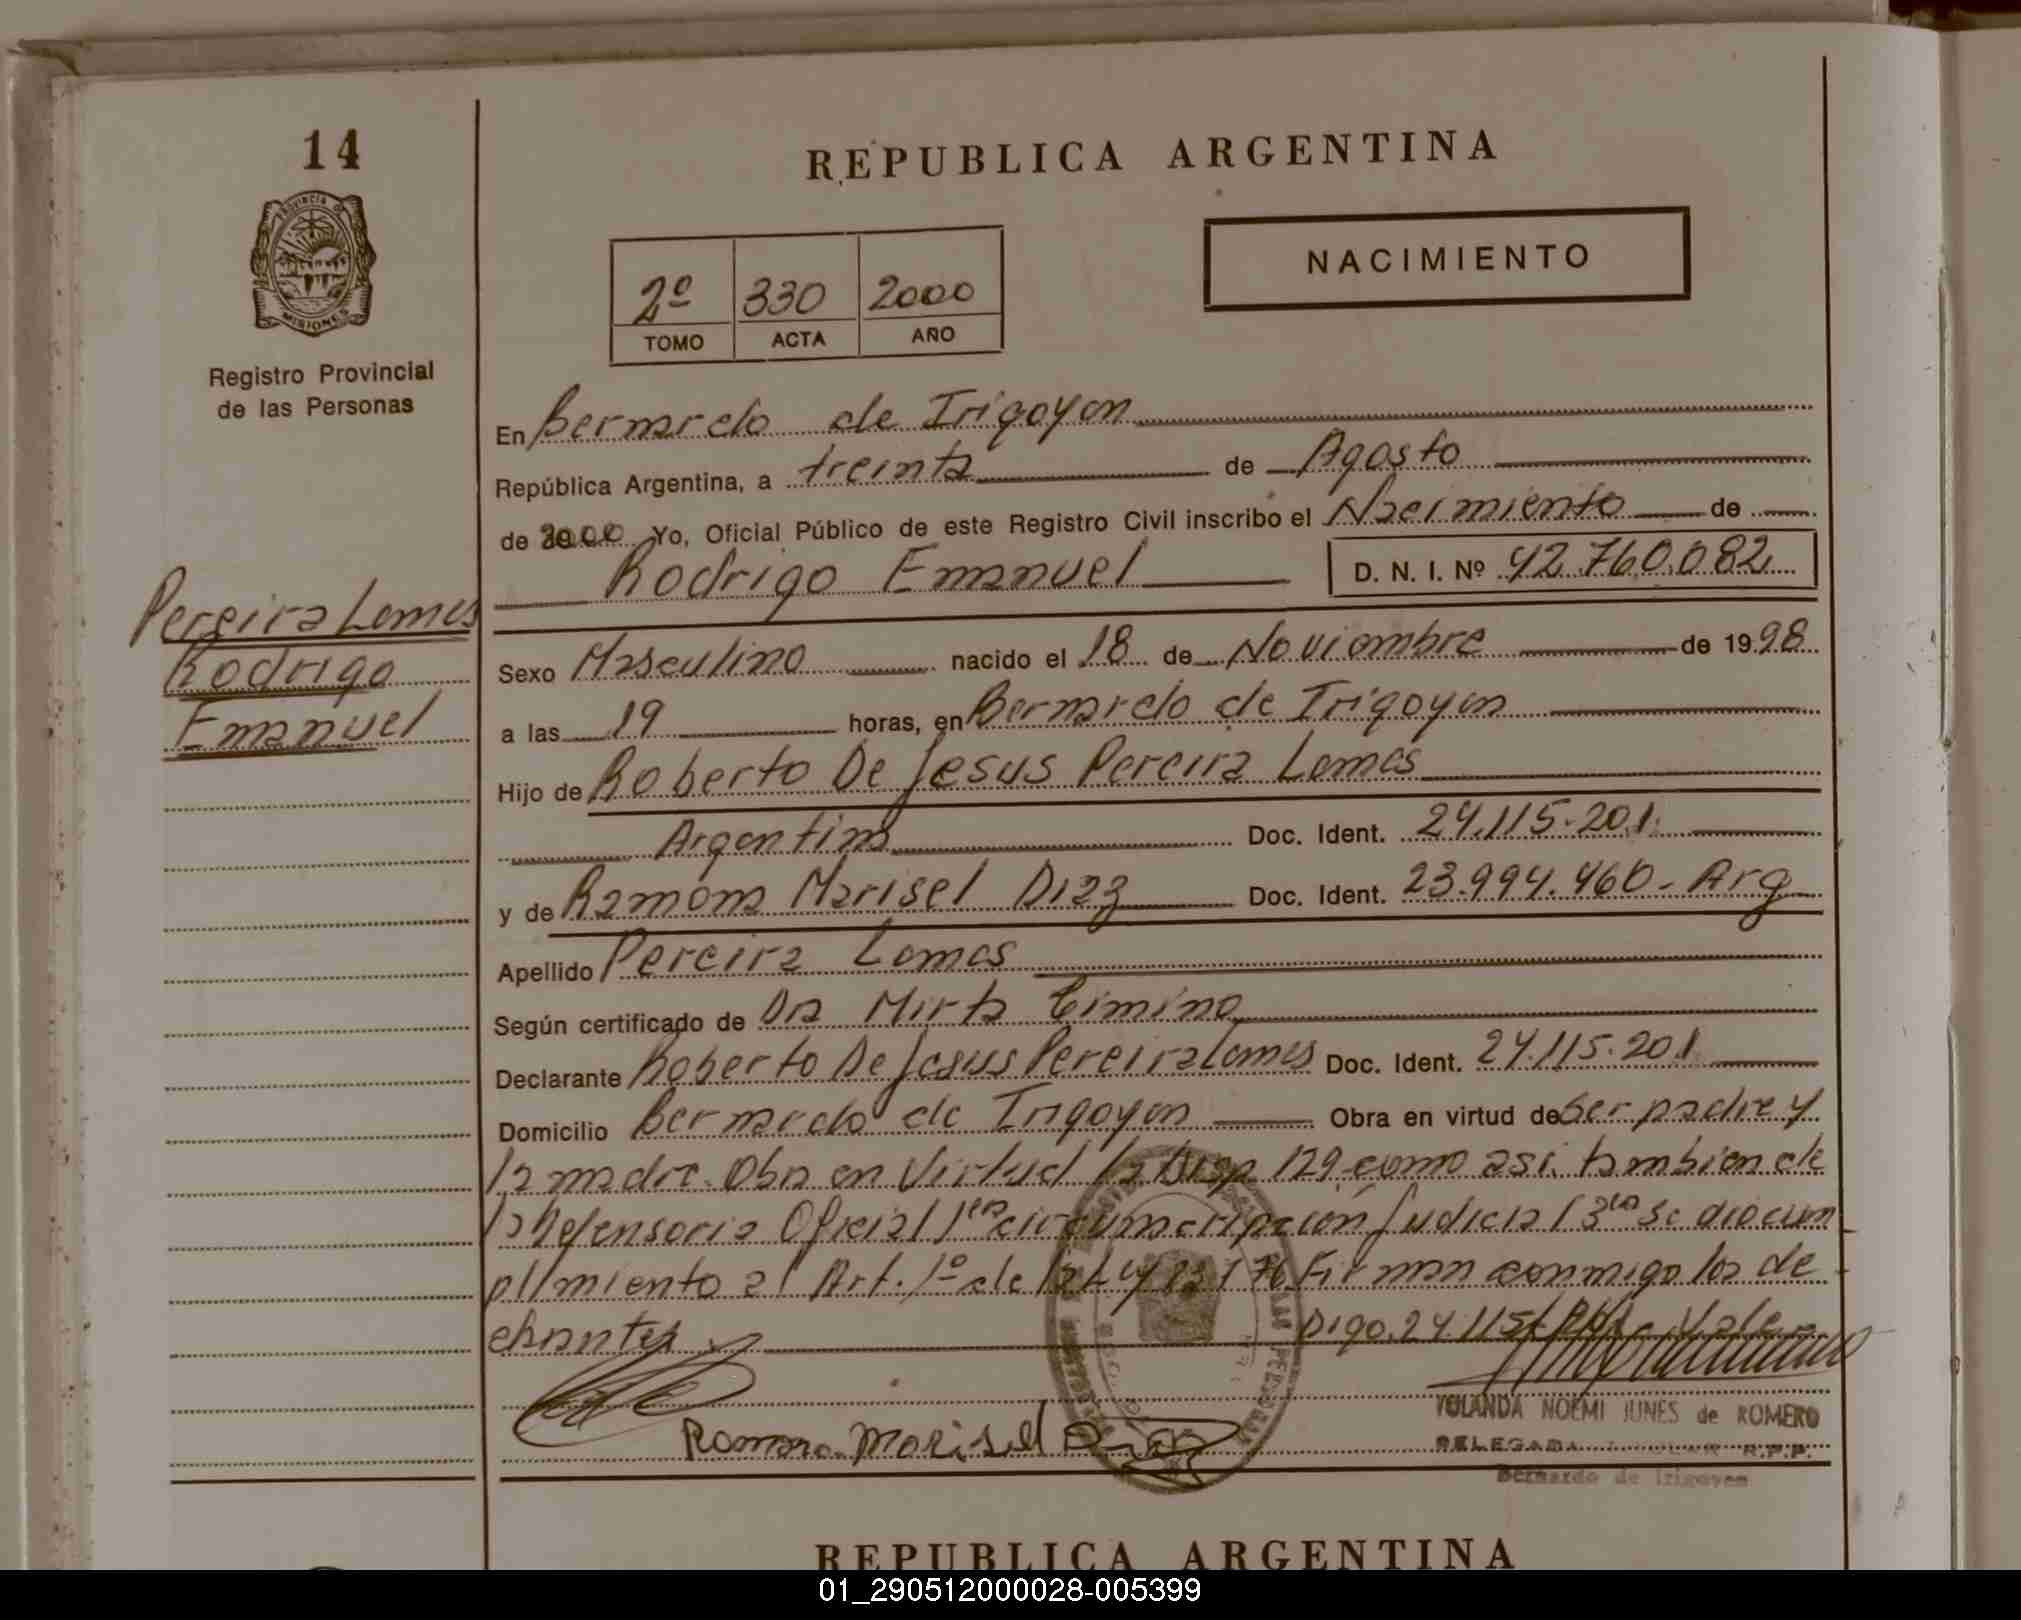 14
Provincia de
MISIONES
Registro Provincial
de las Personas
Pereira Lomes
Rodrigo
Emanuel
REPUBLICA ARGENTINA
NACIMIENTO
2º 330 2000
TOMO ACTA AÑO
En Bernardo de Irigoyen
República Argentina, a treinta de Agosto
de 2000 Yo, Oficial Público de este Registro Civil inscribo el Nacimiento de
Rodrigo Emanuel D. N. I. Nº 42.760.082
Sexo Masculino nacido el 18 de Noviembre de 1998
a las 19 horas, en Bernardo de Irigoyen
Hijo de Roberto De Jesus Pereira Lomes
Argentino Doc. Ident. 24.115.201
y de Ramona Marisel Diaz Doc. Ident. 23.994.460 - Arg
Apellido Pereira Lomes
Según certificado de Dra Mirta Cimino
Declarante Roberto De Jesus Pereira Lomes Doc. Ident. 24.115.201
Domicilio Bernardo de Irigoyen Obra en virtud de Ser padre y
la madre. Obra en Virtud la Disp 129 como asi tambien de
la Defensoria Oficial 1era circunscripción Judicial 3era Se dio cum
plimiento al Art. 1º de la Ley Firman conmigo los de
clarantes
Digo. 24.115. Vale
Ramona Marisel Diaz
YOLANDA NOEMI JUNES de ROMERO
DELEGADA R.P.P.
Bernardo de Irigoyen
REPUBLICA ARGENTINA
01_290512000028-005399